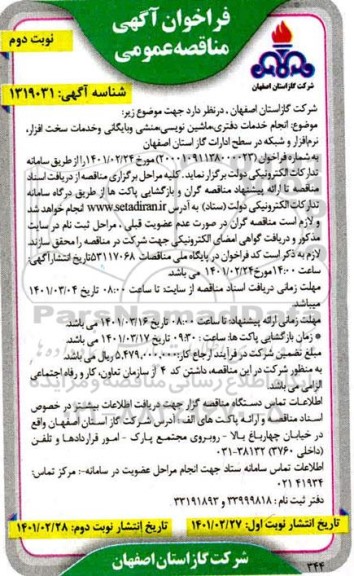 فراخوان آگهی
مناقصه عمومی
نوبت دوم
شرکت گاز استان اصفهان
شناسه آگهی: ۱۳۱۹۰۳۱
شرکت گاز استان اصفهان ، درنظر دارد جهت موضوع زیر:
موضوع: انجام خدمات دفتری،ماشین نویسی،منشی وبایگانی وخدمات سخت افزار،
نرم‌افزار و شبکه در سطح ادارات گاز استان اصفهان
به شماره فراخوان (۲۰۰۰۱۰۹۱۱۳۸۰۰۰۰۲۳) مورخ ۱۴۰۱/۰۲/۲۴ را از طریق سامانه
تدارکات الکترونیکی دولت برگزار نماید. کلیه مراحل برگزاری مناقصه از دریافت اسناد
مناقصه تا ارائه پیشنهاد مناقصه گران و بازگشایی پاکت ها از طریق درگاه سامانه
تدارکات الکترونیکی دولت (ستاد) به آدرس www.setadiran.ir انجام خواهد شد
و لازم است مناقصه گران در صورت عدم عضویت قبلی ، مراحل ثبت نام در سایت
مذکور و دریافت گواهی امضای الکترونیکی جهت شرکت در مناقصه را محقق سازند.
لازم به ذکر است کد فراخوان در پایگاه ملی مناقصات ۵۳۱۱۷۰۶۸ تاریخ انتشار آگهی:
ساعت ۱۴:۰۰ مورخ ۱۴۰۱/۰۲/۲۴ می باشد.
مهلت زمانی دریافت اسناد مناقصه از سایت: تا ساعت ۰۸:۰۰ تاریخ ۱۴۰۱/۰۳/۰۴
میباشد.
مهلت زمانی ارائه پیشنهاد: تا ساعت ۰۸:۰۰ تاریخ ۱۴۰۱/۰۳/۱۶ می باشد.
* زمان بازگشایی پاکت ها: ساعت: ۰۹:۳۰ تاریخ ۱۴۰۱/۰۳/۱۷ می باشد.
مبلغ تضمین شرکت در فرآیند ارجاع کار: ۵,۴۷۹,۰۰۰,۰۰۰ ریال می باشد.
به منظور شرکت در این مناقصه، داشتن کد ۴ از سازمان تعاون، کار و رفاه اجتماعی
الزامی می باشد.
اطلاعات تماس دستگاه مناقصه گزار جهت دریافت اطلاعات بیشتر در خصوص
اسناد مناقصه و ارائه پاکت های الف: آدرس شرکت گاز استان اصفهان واقع
در خیابان چهارباغ بالا - روبروی مجتمع پارک - امور قراردادها و تلفن
۰۳۱-۳۸۱۳۲ (داخلی ۳۷۶۰)
اطلاعات تماس سامانه ستاد جهت انجام مراحل عضویت در سامانه:- مرکز تماس:
۰۲۱ ۴۱۹۳۴
دفتر ثبت نام : ۳۳۹۹۹۸۱۸ و ۳۳۱۹۱۸۹۳
تاریخ انتشار نوبت اول: ۱۴۰۱/۰۲/۲۷
تاریخ انتشار نوبت دوم: ۱۴۰۱/۰۲/۲۸
شرکت گاز استان اصفهان
۳۴۴